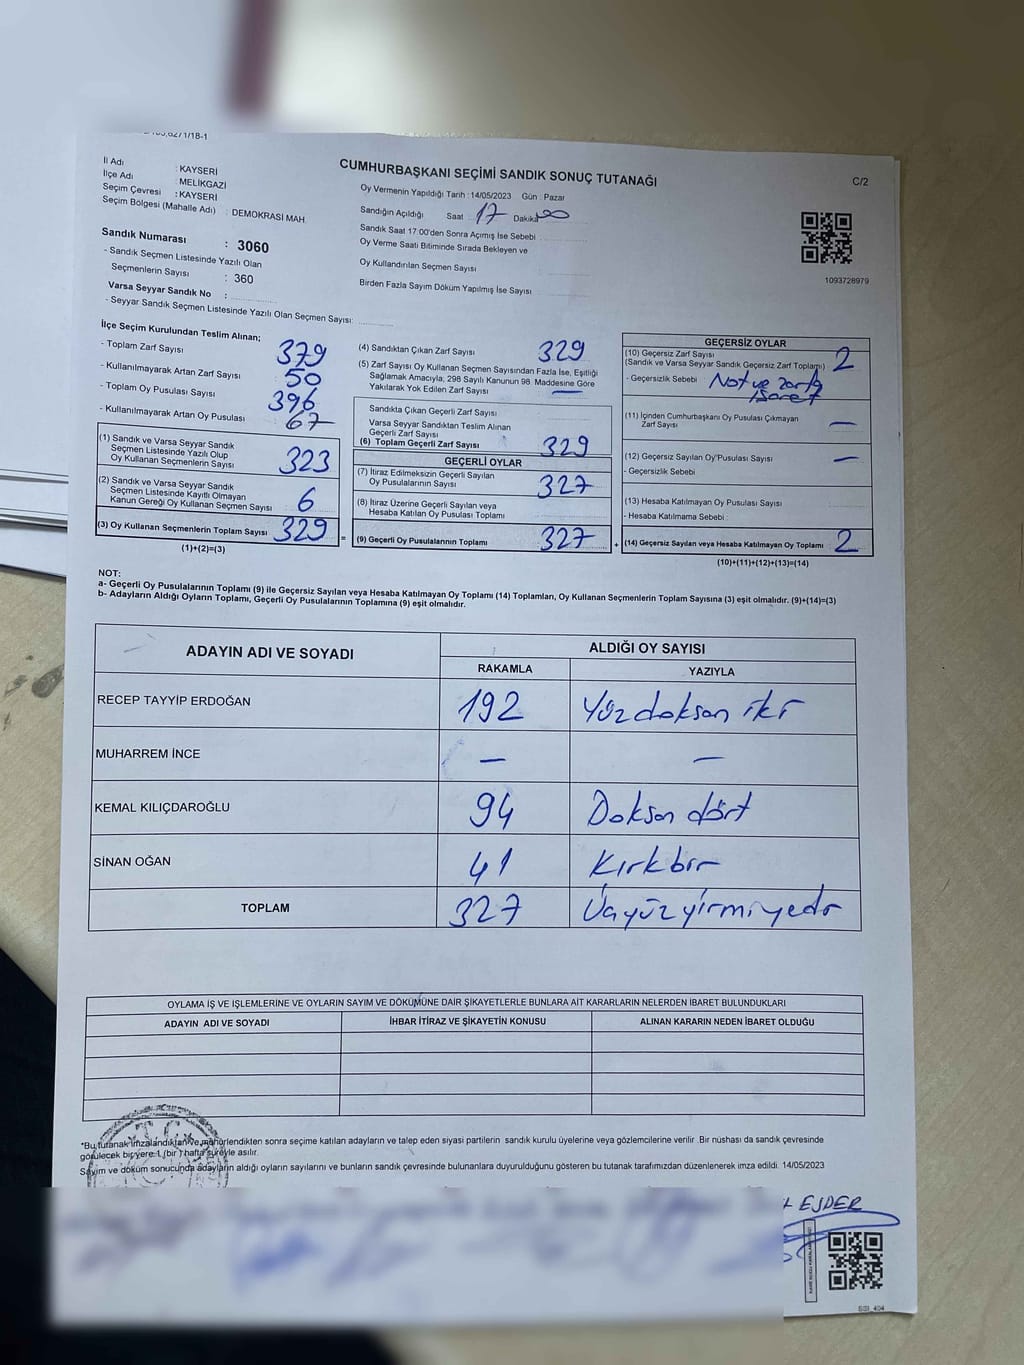 CUMHURBAŞKANI SEÇİMİ SANDIK SONUÇ TUTANAĞI
C/2
İl Adı : KAYSERİ
İlçe Adı : MELİKGAZİ
Seçim Çevresi : KAYSERİ
Seçim Bölgesi (Mahalle Adı) : DEMOKRASİ MAH.
Oy Vermenin Yapıldığı Tarih : 14/05/2023 Gün : Pazar
Sandığın Açıldığı Saat 17 Dakika 00
Sandık Saat 17:00'den Sonra Açımış İse Sebebi
Oy Verme Saati Bitiminde Sırada Bekleyen ve
Oy Kullandırılan Seçmen Sayısı
Birden Fazla Sayım Döküm Yapılmış İse Sayısı
1093728979
Sandık Numarası : 3060
- Sandık Seçmen Listesinde Yazılı Olan
Seçmenlerin Sayısı : 360
Varsa Seyyar Sandık No :
- Seyyar Sandık Seçmen Listesinde Yazılı Olan Seçmen Sayısı:
İlçe Seçim Kurulundan Teslim Alınan;
- Toplam Zarf Sayısı 379
- Kullanılmayarak Artan Zarf Sayısı 50
- Toplam Oy Pusulası Sayısı 396
- Kullanılmayarak Artan Oy Pusulası 67
(1) Sandık ve Varsa Seyyar Sandık
Seçmen Listesinde Yazılı Olup
Oy Kullanan Seçmenlerin Sayısı 323
(2) Sandık ve Varsa Seyyar Sandık
Seçmen Listesinde Kayıtlı Olmayan
Kanun Gereği Oy Kullanan Seçmen Sayısı 6
(3) Oy Kullanan Seçmenlerin Toplam Sayısı 329
(1)+(2)=(3)
(4) Sandıktan Çıkan Zarf Sayısı 329
(5) Zarf Sayısı Oy Kullanan Seçmen Sayısından Fazla İse, Eşitliği
Sağlamak Amacıyla, 298 Sayılı Kanunun 98. Maddesine Göre
Yakılarak Yok Edilen Zarf Sayısı —
Sandıkta Çıkan Geçerli Zarf Sayısı
Varsa Seyyar Sandıktan Teslim Alınan
Geçerli Zarf Sayısı
(6) Toplam Geçerli Zarf Sayısı 329
GEÇERLİ OYLAR
(7) İtiraz Edilmeksizin Geçerli Sayılan
Oy Pusulalarının Sayısı 327
(8) İtiraz Üzerine Geçerli Sayılan veya
Hesaba Katılan Oy Pusulası Toplamı
= (9) Geçerli Oy Pusulalarının Toplamı 327 +
GEÇERSİZ OYLAR
(10) Geçersiz Zarf Sayısı 2
(Sandık ve Varsa Seyyar Sandık Geçersiz Zarf Toplamı)
- Geçersizlik Sebebi Not ve zarfa
işaret
(11) İçinden Cumhurbaşkanı Oy Pusulası Çıkmayan
Zarf Sayısı —
(12) Geçersiz Sayılan Oy Pusulası Sayısı —
- Geçersizlik Sebebi
(13) Hesaba Katılmayan Oy Pusulası Sayısı
- Hesaba Katılmama Sebebi
(14) Geçersiz Sayılan veya Hesaba Katılmayan Oy Toplamı 2
(10)+(11)+(12)+(13)=(14)
NOT:
a- Geçerli Oy Pusulalarının Toplamı (9) ile Geçersiz Sayılan veya Hesaba Katılmayan Oy Toplamı (14) Toplamları, Oy Kullanan Seçmenlerin Toplam Sayısına (3) eşit olmalıdır. (9)+(14)=(3)
b- Adayların Aldığı Oyların Toplamı, Geçerli Oy Pusulalarının Toplamına (9) eşit olmalıdır.
ADAYIN ADI VE SOYADI ALDIĞI OY SAYISI
RAKAMLA YAZIYLA
RECEP TAYYİP ERDOĞAN 192 Yüzdoksan iki
MUHARREM İNCE — —
KEMAL KILIÇDAROĞLU 94 Doksan dört
SİNAN OĞAN 41 Kırkbir
TOPLAM 327 Üçyüzyirmiyedi
OYLAMA İŞ VE İŞLEMLERİNE VE OYLARIN SAYIM VE DÖKÜMÜNE DAİR ŞİKAYETLERLE BUNLARA AİT KARARLARIN NELERDEN İBARET BULUNDUKLARI
ADAYIN ADI VE SOYADI İHBAR İTİRAZ VE ŞİKAYETİN KONUSU ALINAN KARARIN NEDEN İBARET OLDUĞU
*Bu tutanak imzalandıktan ve mühürlendikten sonra seçime katılan adayların ve talep eden siyasi partilerin sandık kurulu üyelerine veya gözlemcilerine verilir. Bir nüshası da sandık çevresinde
görülecek bir yere 1 (bir) hafta süreyle asılır.
Sayım ve döküm sonucunda adayların aldığı oyların sayılarını ve bunların sandık çevresinde bulunanlara duyurulduğunu gösteren bu tutanak tarafımızdan düzenlenerek imza edildi. 14/05/2023
EJDER